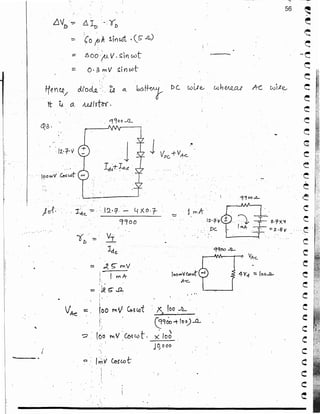 56
ΔV_D = ΔI_D · r_D
= 60 μA sinωt · (5 Ω)
= 300 μV · sinωt
= 0.3 mV sinωt
Hence, diode is a battery DC wise whereas AC wise
it is a resistor.
Q3.
9900 Ω
12.7 V
I_dc + I_ac
V_DC + V_AC
100mV Cosωt
Sol.
I_dc = 12.7 - 4 x 0.7 / 9900 = 1 mA
9900 Ω
12.7V
DC
1 mA
0.7 x 4
= 2.8 V
r_D = V_T / I_dc
= 25 mV / 1 mA
= 25 Ω
9900 Ω
V_AC
100mV Cosωt
AC
4 r_d = 100 Ω
V_AC = 100 mV Cosωt x 100 Ω / (9900 + 100) Ω
= 100 mV Cosωt · x 100 / 10,000
= 1mV Cosωt